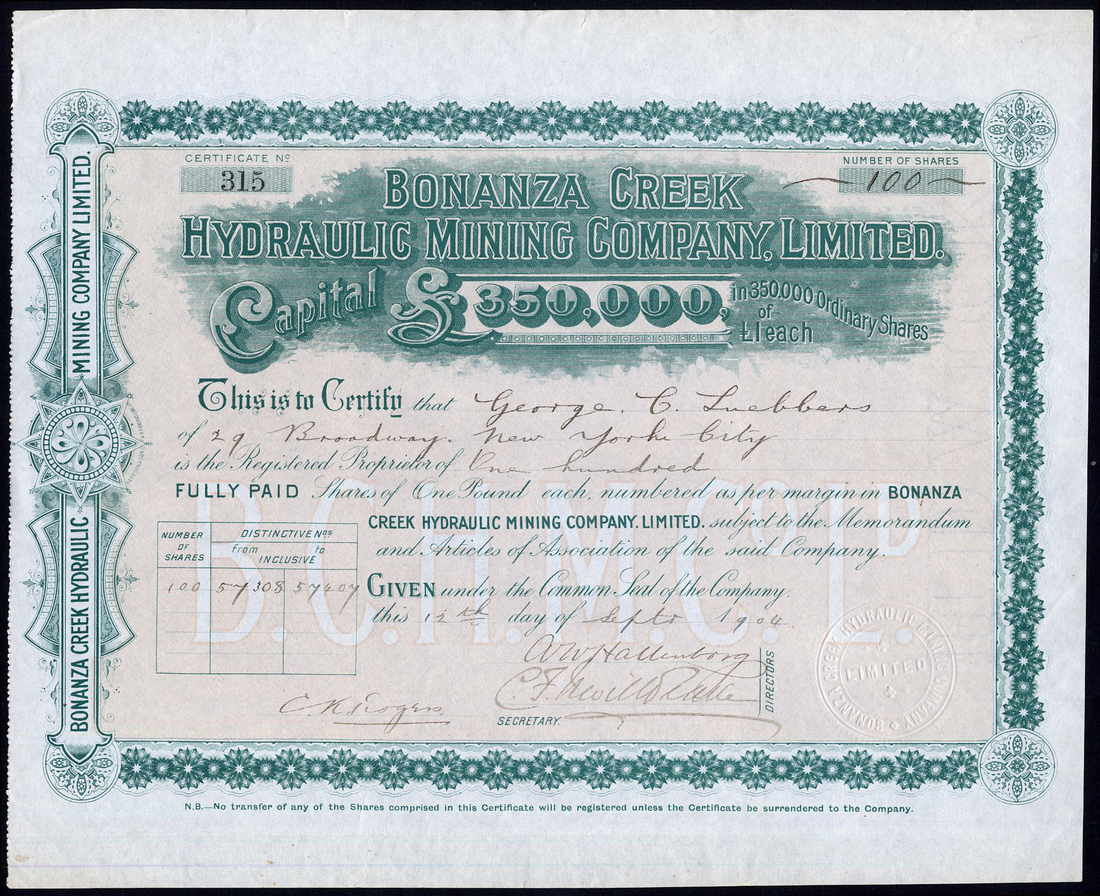 CERTIFICATE Nº
315
NUMBER OF SHARES
100
BONANZA CREEK
HYDRAULIC MINING COMPANY, LIMITED.
Capital £350,000,
in 350.000 Ordinary Shares
of
£1 each
This is to Certify that George. C. Luebbers
of 29 Broadway. New York City
is the Registered Proprietor of One hundred
FULLY PAID Shares of One Pound each, numbered as per margin in BONANZA
CREEK HYDRAULIC MINING COMPANY. LIMITED. subject to the Memorandum
and Articles of Association of the said Company.
NUMBER OF SHARES
DISTINCTIVE Nos
from INCLUSIVE to
100 57308 57407
GIVEN under the Common Seal of the Company,
this 12th day of Septr 1904.
DIRECTORS
C. N. Rogers
SECRETARY.
B.C.H.M.Co LTD.
BONANZA CREEK HYDRAULIC MINING COMPANY LIMITED.
BONANZA CREEK HYDRAULIC MINING COMPANY
LIMITED
N.B.—No transfer of any of the Shares comprised in this Certificate will be registered unless the Certificate be surrendered to the Company.